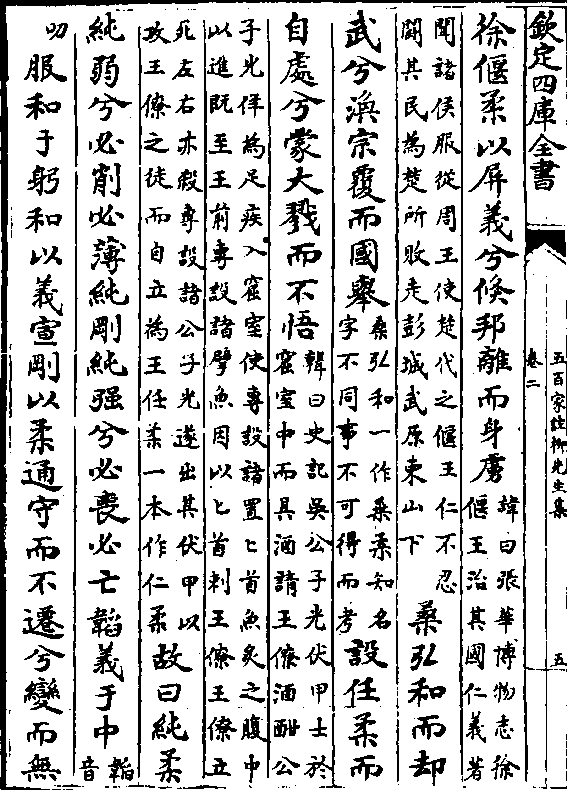 欽定四庫全書
五百家註柳先生集
卷二
五
徐偃柔以屏義兮倏邦離而身虜
諱曰張華博物志徐
偃王治其國仁義著
聞諸侯服從周王使楚伐之偃王仁不忍
鬬其民為楚所敗走彭城武原東山下
桑弘和而却
武兮渙宗覆而國舉
桑弘和一作桑柔知名
字不同事不可得而考
設任柔而
自處兮蒙大戮而不悟
韓曰史記吳公子光伏甲士於
窟室中而具酒請王僚酒酣公
子光佯為足疾入窟室使專設諸置匕首魚炙之腹中
以進既至王前專設諸擘魚因以匕首刺王僚王僚立
死左右亦殺專設諸公子光遂出其伏甲以
攻王僚之徒而自立為王任柔一本作仁柔
故曰純柔
純弱兮必削必薄純剛純强兮必喪必亡韜義于中
韜
音
叨
服和于躬和以義宣剛以柔通守而不遷兮變而無